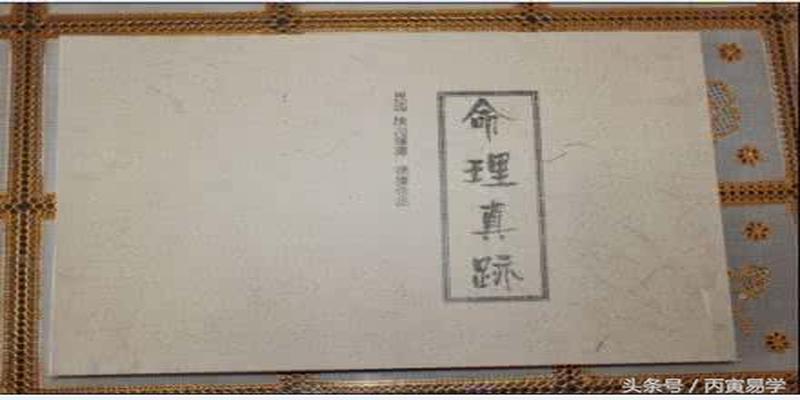 命理真跡
头条号/丙寅易学